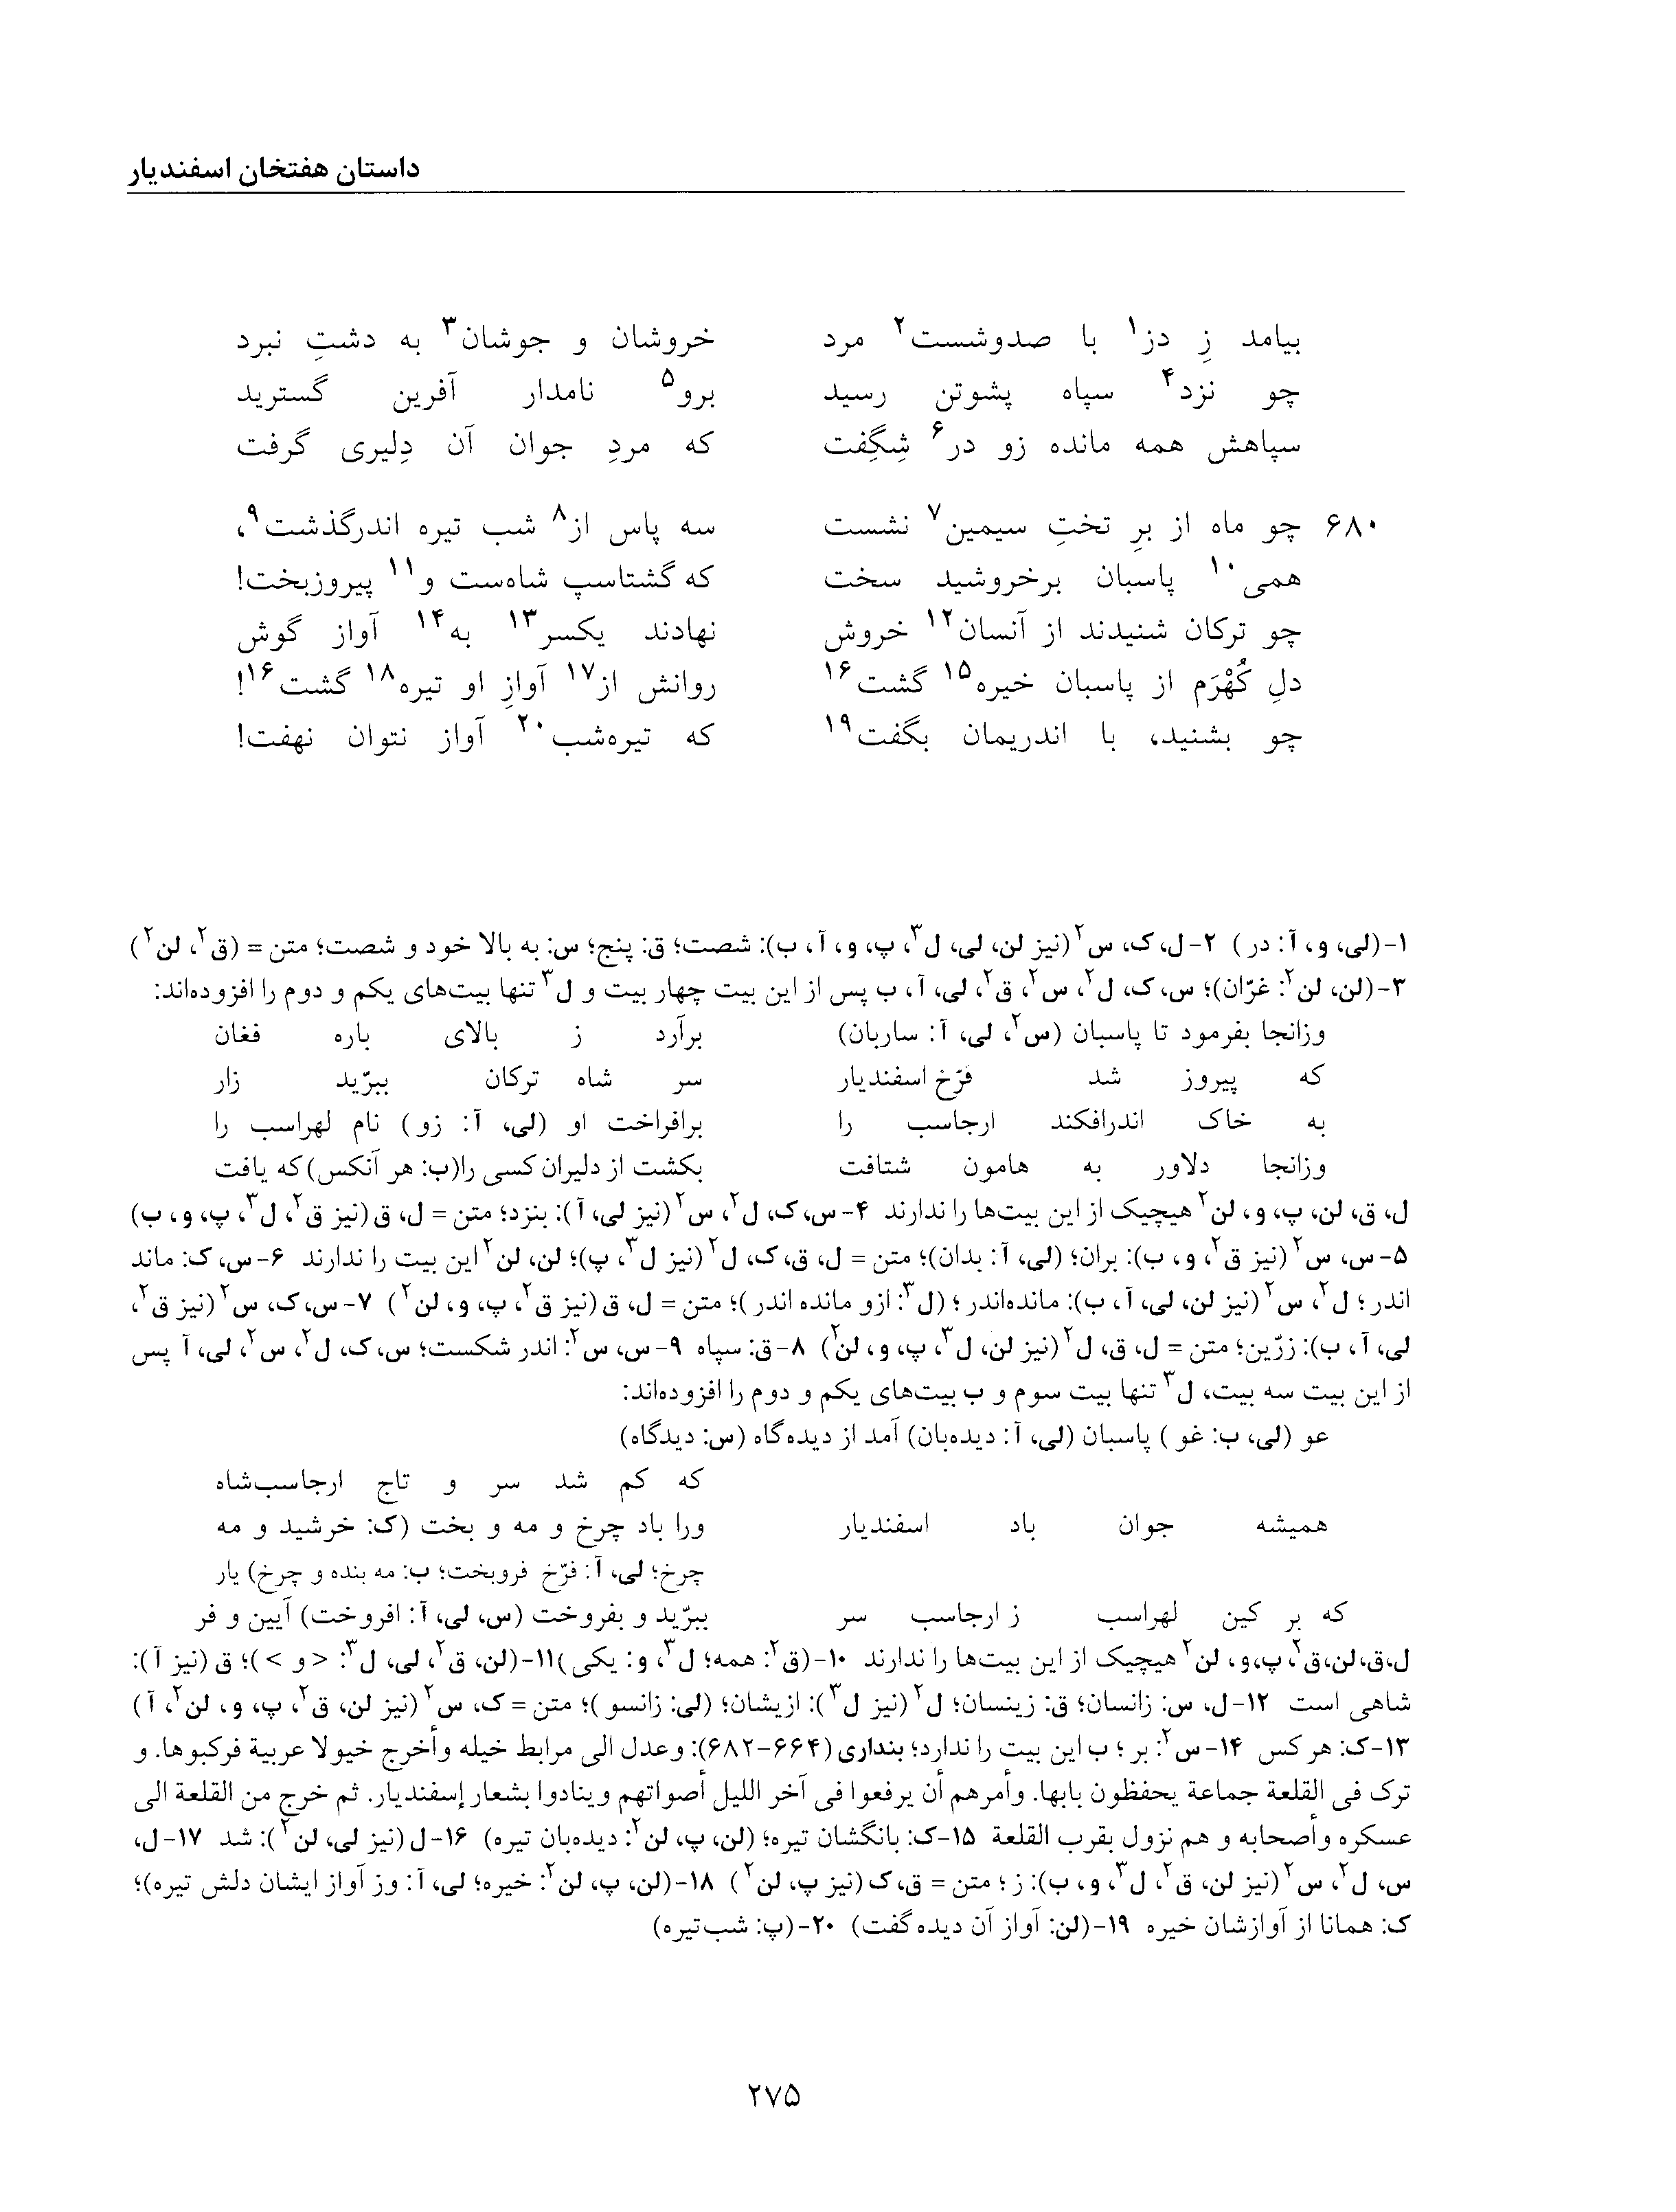 داستان هفتخان اسفندیار
بیامد زِ دز۱ با صدوشست۲ مرد خروشان و جوشان۳ به دشتِ نبرد
چو نزد۴ سپاه پشوتن رسید برو۵ نامدار آفرین گسترید
سپاهش همه مانده زو در۶ شِگِفت که مردِ جوان آن دِلیری گرفت
۶۸۰ چو ماه از برِ تختِ سیمین۷ نشست سه پاس از۸ شب تیره اندرگذشت۹،
همی۱۰ پاسبان برخروشید سخت که گشتاسپ شاه‌ست و۱۱ پیروزبخت!
چو ترکان شنیدند از آنسان۱۲ خروش نهادند یکسر۱۳ به۱۴ آواز گوش
دلِ کُهْرَم از پاسبان خیره۱۵ گشت۱۶ روانش از۱۷ آوازِ او تیره۱۸ گشت۱۶!
چو بشنید، با اندریمان بگفت۱۹ که تیره‌شب۲۰ آواز نتوان نهفت!
۱-(لی، و، آ: در) ۲-ل، ک، س۲ (نیز لن، لی، ل۳، پ، و، آ، ب): شصت؛ ق: پنج؛ س: به بالا خود و شصت؛ متن = (ق۲، لن۲)
۳-(لن، لن۲: غرّان)؛ س، ک، ل۲، س۲، ق۲، لی، آ، ب پس از این بیت چهار بیت و ل۳ تنها بیت‌های یکم و دوم را افزوده‌اند:
وزانجا بفرمود تا پاسبان (س۲، لی، آ: ساربان) برآرد ز بالای باره فغان
که پیروز شد فرّخ اسفندیار سر شاه ترکان ببرّید زار
به خاک اندرافکند ارجاسب را برافراخت او (لی، آ: زو) نام لهراسب را
وزانجا دلاور به هامون شتافت بکشت از دلیران کسی را(ب: هر آنکس)که یافت
ل، ق، لن، پ، و، لن۲ هیچیک از این بیت‌ها را ندارند ۴-س، ک، ل۲، س۲ (نیز لی، آ): بنزد؛ متن = ل، ق (نیز ق۲، ل۳، پ، و، ب)
۵-س، س۲ (نیز ق۲، و، ب): بران؛ (لی، آ: بدان)؛ متن = ل، ق، ک، ل۲ (نیز ل۳، پ)؛ لن، لن۲ این بیت را ندارند ۶-س، ک: ماند
اندر؛ ل۲، س۲ (نیز لن، لی، آ، ب): مانده‌اندر؛ (ل۳: ازو مانده اندر)؛ متن = ل، ق (نیز ق۲، پ، و، لن۲) ۷-س، ک، س۲ (نیز ق۲،
لی، آ، ب): زرّین؛ متن = ل، ق، ل۲ (نیز لن، ل۳، پ، و، لن۲) ۸-ق: سپاه ۹-س، س۲: اندر شکست؛ س، ک، ل۲، س۲، لی، آ پس
از این بیت سه بیت، ل۳ تنها بیت سوم و ب بیت‌های یکم و دوم را افزوده‌اند:
عو (لی، ب: غو) پاسبان (لی، آ: دیده‌بان) آمد از دیده‌گاه (س: دیدگاه)
که کم شد سر و تاج ارجاسب‌شاه
همیشه جوان باد اسفندیار ورا باد چرخ و مه و بخت (ک: خرشید و مه
چرخ؛ لی، آ: فرّخ فروبخت؛ ب: مه بنده و چرخ) یار
که بر کین لهراسب ز ارجاسب سر ببرّید و بفروخت (س، لی، آ: افروخت) آیین و فر
ل،ق،لن،ق۲،پ،و، لن۲ هیچیک از این بیت‌ها را ندارند ۱۰-(ق۲: همه؛ ل۳، و: یکی)۱۱-(لن، ق۲، لی، ل۳: <و>)؛ ق (نیز آ):
شاهی است ۱۲-ل، س: زانسان؛ ق: زینسان؛ ل۲ (نیز ل۳): ازیشان؛ (لی: زانسو)؛ متن = ک، س۲ (نیز لن، ق۲، پ، و، لن۲، آ)
۱۳-ک: هر کس ۱۴-س۲: بر؛ ب این بیت را ندارد؛ بنداری (۶۶۴-۶۸۲): وعدل الی مرابط خیله وأخرج خیولا عربیة فرکبوها. و
ترک فی القلعة جماعة یحفظون بابها. وأمرهم أن یرفعوا فی آخر اللیل أصواتهم وینادوا بشعار إسفندیار. ثم خرج من القلعة الی
عسکره وأصحابه و هم نزول بقرب القلعة ۱۵-ک: بانگشان تیره؛ (لن، پ، لن۲: دیده‌بان تیره) ۱۶-ل (نیز لی، لن۲): شد ۱۷-ل،
س، ل۲، س۲ (نیز لن، ق۲، ل۳، و، ب): ز؛ متن = ق، ک (نیز پ، لن۲) ۱۸-(لن، پ، لن۲: خیره؛ لی، آ: وز آواز ایشان دلش تیره)؛
ک: همانا از آوازشان خیره ۱۹-(لن: آواز آن دیده گفت) ۲۰-(پ: شب تیره)
۲۷۵